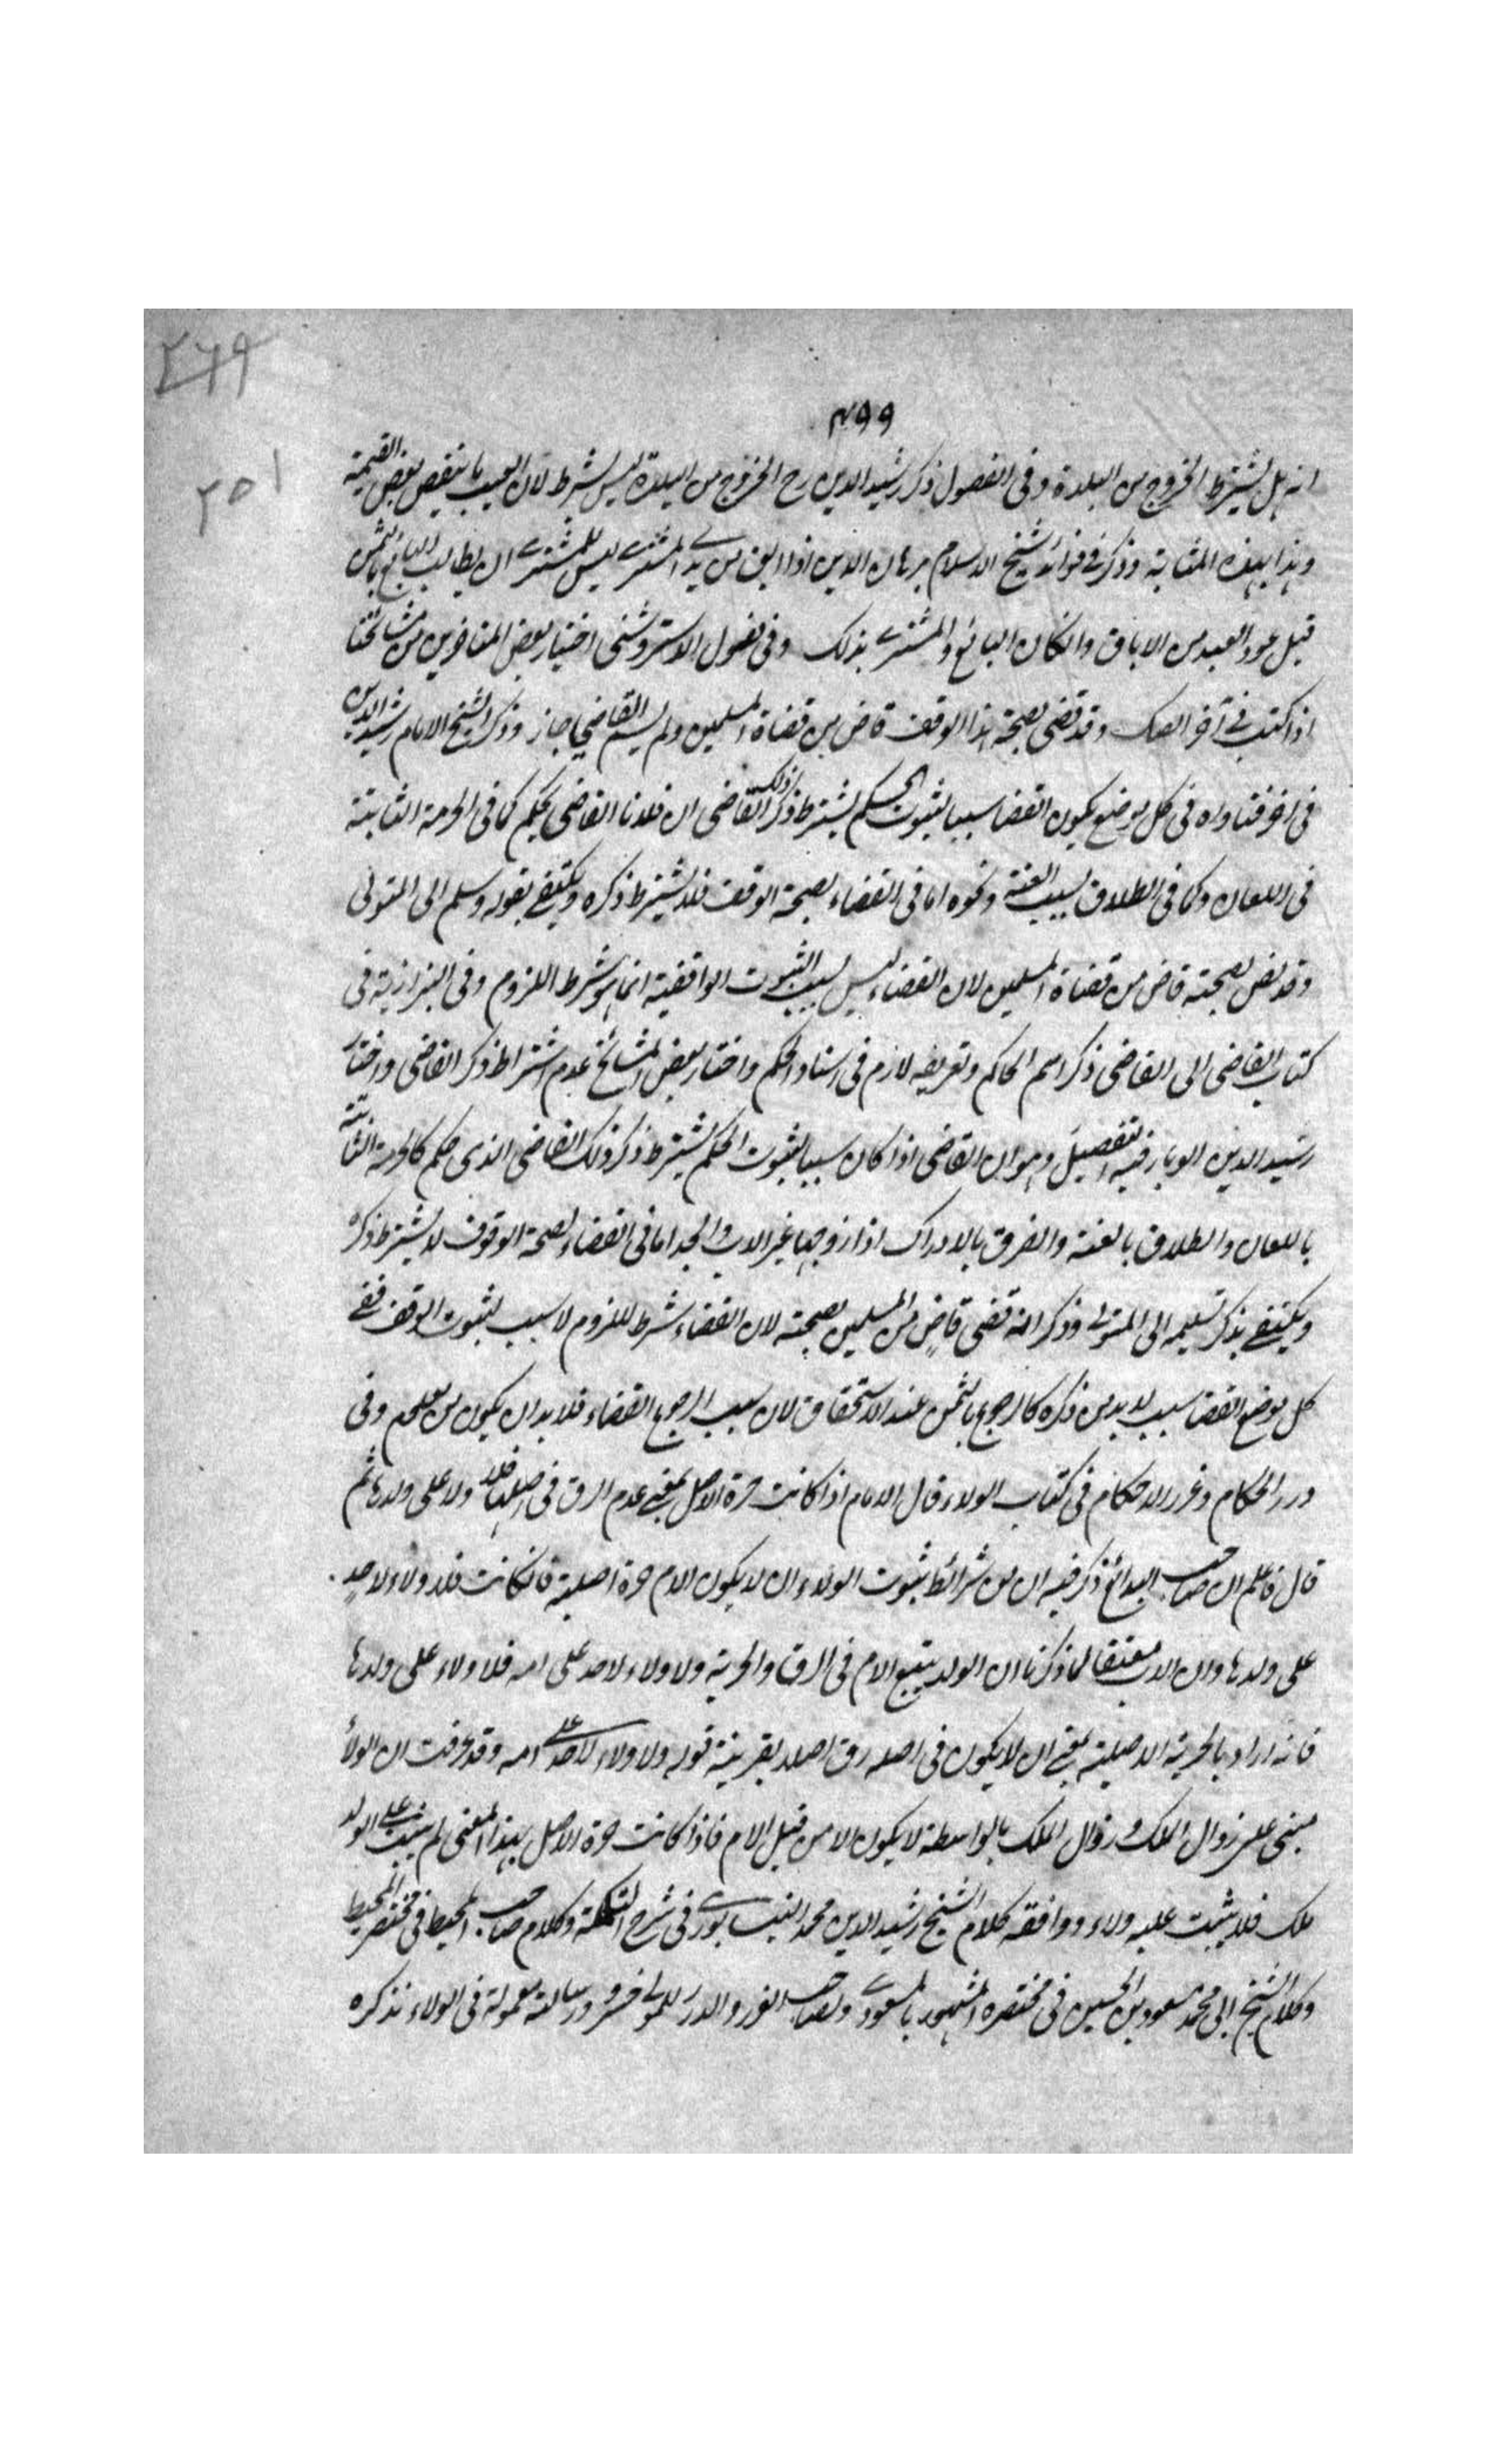 ٢٦٩
٤٩٩
٢٥١
انه هل يشترط الخروج من البلدة وفى الفصول ذكر رشيد الدين رح الخروج من البلدة ليس بشرط لان العيب ما ينقص بعض القيمة
وهذا بهذه المثابة وذكر فى فوائد شيخ الاسلام برهان الدين اذا ابق من يد المشترى ليس للمشترى ان يطالب البائع بالثمن
قبل عود العبد من الاباق وانكان البائع والمشترى بذلك وفى فصول الاستروشنى اختيار بعض المتاخرين من مشائخنا
اذا كتب فى آخر الصك وقد قضى بصحة هذا الوقف قاض من قضاة المسلمين ولم يسم القاضي جاز وذكر الشيخ الامام رشيد الدين
فى اخر فتاواه فى كل موضع يكون القضا سببا لثبوت الحكم يشترط ذكر ذلك القاضى ان فلانا القاضى يحكم كما فى الحرمة الثابتة
فى اللعان وكما فى الطلاق بسبب العنة ونحوه اما فى القضاء بصحة الوقف فلا يشترط ذكره ويكتفى بقوله وسلم الى المتولى
وقد نفى بصحته قاض من قضاة المسلمين لان القضاء ليس بسبب لثبوت الواقفية انما هو شرط اللزوم وفى البزازية فى
كتاب القاضى الى القاضى ذكر اسم الحاكم وتعريفه لازم فى اسناد الحكم واختار بعض المشائخ عدم اشتراط ذكر القاضى واختار
رشيد الدين فيه التفصيل وهو ان القاضى اذا كان سببا لثبوت الحكم يشترط ذكر ذلك القاضى الذى حكم كالحرمة الثابتة
باللعان والطلاق بالعنة والفرق بالادراك اذا زوجها غير الاب والجد اما فى القضاء لصحة الوقوف لا يشترط ذكره
ويكتفى بذكر تسليمه الى المتولى وذكر انه قضى قاضٍ من المسلمين بصحته لان القضاء شرط للزوم لا سبب لثبوت الوقف ففى
كل موضع القضا سبب لا بد من ذكره كالرجوع بالثمن عند الاستحقاق لان سبب الرجوع القضاء فلا بد ان يكون من معلوم وفى
درر الحكام وغرر الاحكام فى كتاب الولاء قال الامام اذا كانت حرة الاصل بمعنى عدم الرق فى اصلها فلا ولاء على ولدها ثم
قال فاعلم ان صاحب البدائع ذكر فيه ان من شرائط ثبوت الولاء ان لا يكون الام حرة اصلية فانكانت فلا ولاء لاحدٍ
على ولدها وان الاب معتقا لما ذكرنا ان الولد يتبع الام فى الرق والحرية ولا ولاء لاحد على امه فلا ولاء على ولدها
فانه اراد بالحرية الاصلية بمعنى ان لا يكون فى اصله رق اصلا بقرينة قوله ولا ولاء لاحد على امه وقد عرفت ان الولاء
مبنى على زوال الملك وزوال الملك بالواسطة لا يكون الا من قبل الام فاذا كانت حرة الاصل بهذا المعنى لم يثبت على الولد
ملك فلا يثبت عليه ولاء ووافقه كلام الشيخ رشيد الدين محمد النيسابورى فى شرح التكملة وكلام صاحب المحيط فى مختصر المحيط
وكلام الشيخ ابى محمد مسعود بن الحسين فى مختصره المشهور بالمسعودى ولصاحب الغرر والدرر للمولى خسرو رسالة معمولة فى الولاء نذكره